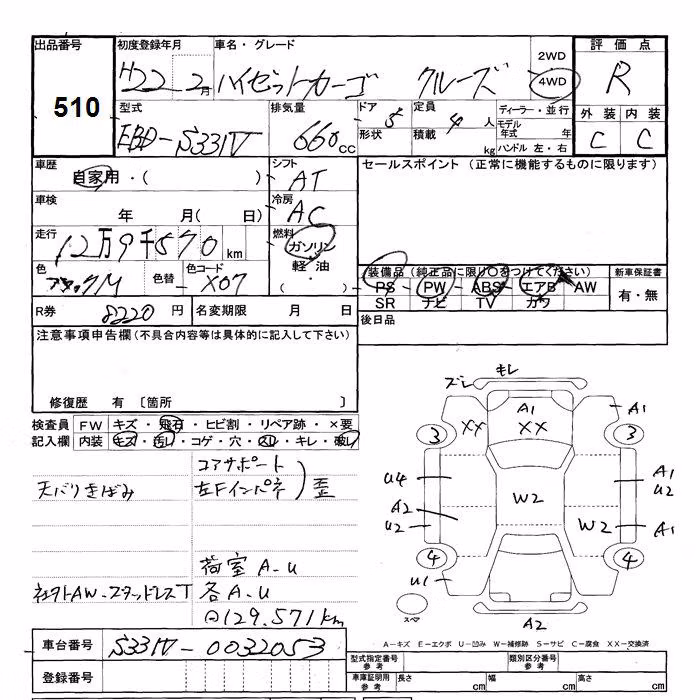 出品番号 初度登録年月 車名・グレード 2WD 評価点
510 H22 2月 ハイゼットカーゴ クルーズ 4WD R
型式 排気量 ドア 5 定員 4人 ディーラー・並行 外装 内装
EBD-S331V 660cc 形状 積載 kg モデル年式 年 C C
ハンドル 左・右
車歴 自家用・( ) シフト AT セールスポイント (正常に機能するものに限ります)
車検 年 月( 日) 冷房 AC
走行 12万9千570km 燃料 ガソリン
軽油
( ・ )
色 ブラックM 色替 色コード X07 装備品(純正品に限り○をつけてください) 新車保証書
PS PW ABS エアB AW 有・無
SR ナビ TV カワ
R券 8220円 名変期限 月 日 後日品
注意事項申告欄(不具合内容等は具体的に記入して下さい)
修復歴 有 〔箇所 〕
検査員 FW キズ・飛石・ヒビ割・リペア跡・×要
記入欄 内装 キズ・汚レ・コゲ・穴・スレ・キレ・破レ
コアサポート
天バリきばみ 左Fインパネ 歪
荷室 A-U
社外AW-スタッドレスT 各A-U
129.571km
ズレ モレ
A1
XX XX A1
3 3
U4 W2 A1
U2
A2
U2 W2 A1
4 4
U1
スペア
A2
A-キズ E-エクボ U-凹み W-補修跡 S-サビ C-腐食 XX-交換済
車台番号 S331V-0032053
登録番号
型式指定番号 参考 類別区分番号 参考
車庫証明用 参考 長さ cm 幅 cm 高さ cm